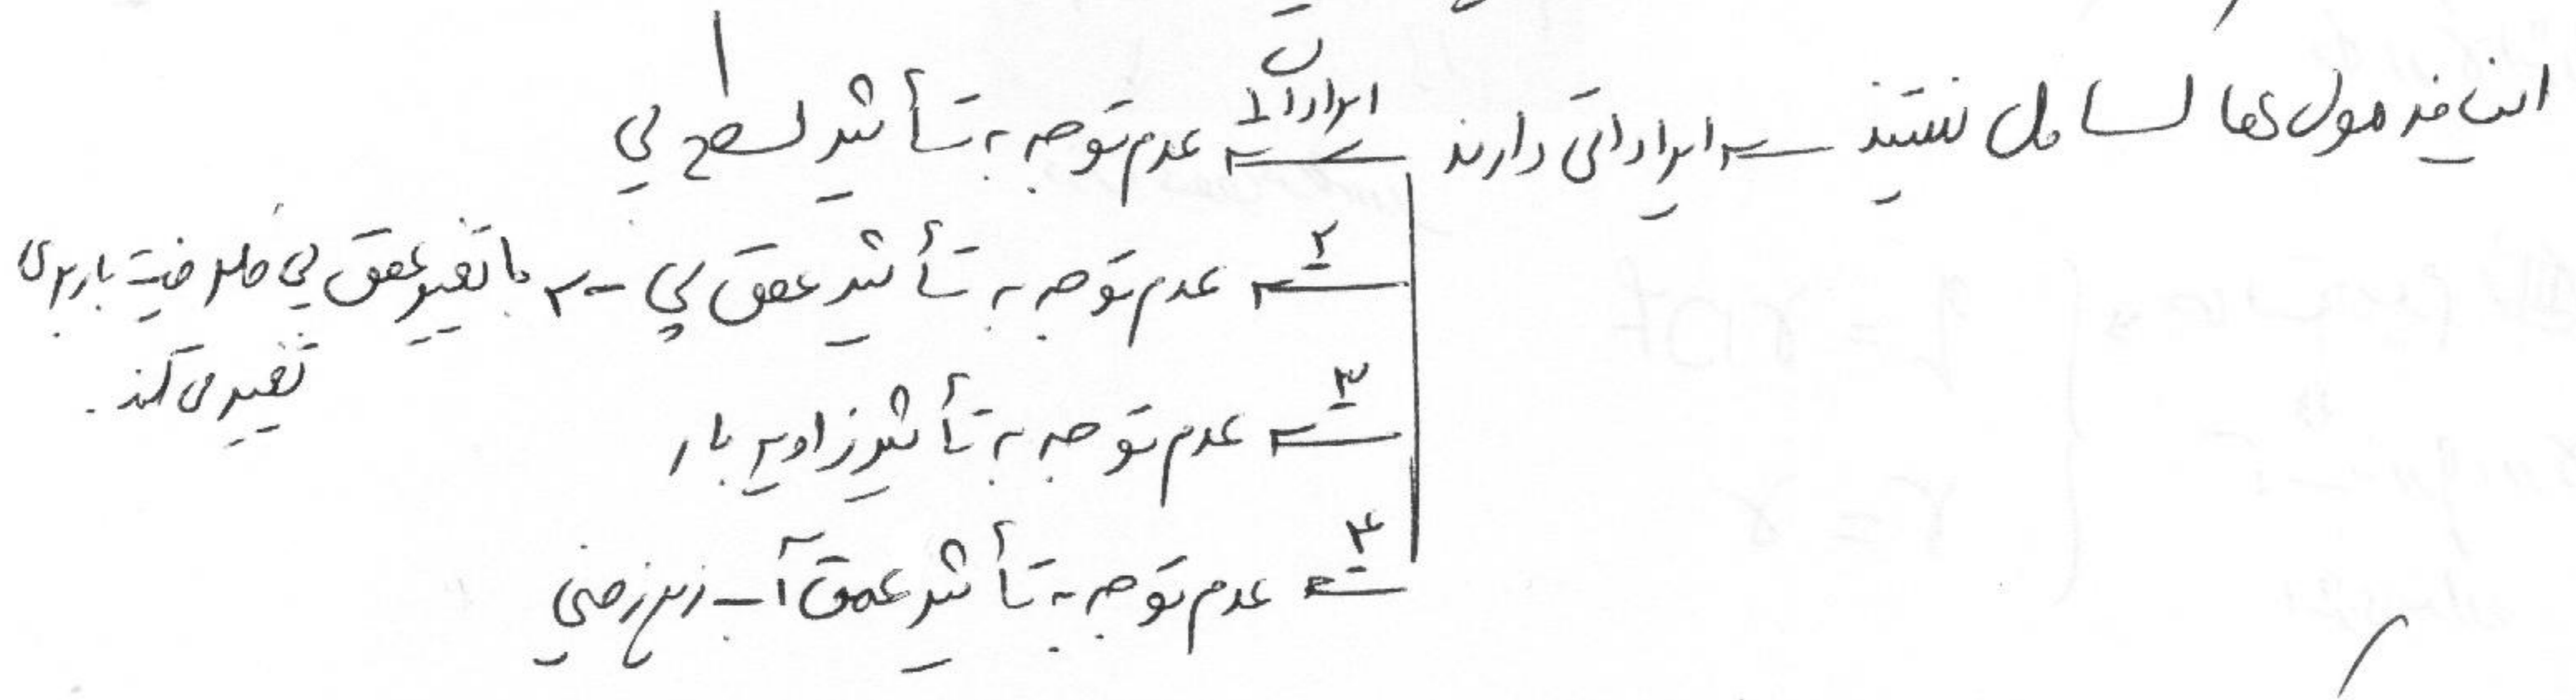 این فرمول ها کامل نیستند ← ایراداتی دارند
ایرادات ۱ ← عدم توجه به تأثیر سطح پی
۲ ← عدم توجه به تأثیر عمق پی ← با تغییر عمق پی ظرفیت باربری
تغییر می کند.
۳ ← عدم توجه به تأثیر زاویه بار
۴ ← عدم توجه به تأثیر عمق آب زیرزمینی